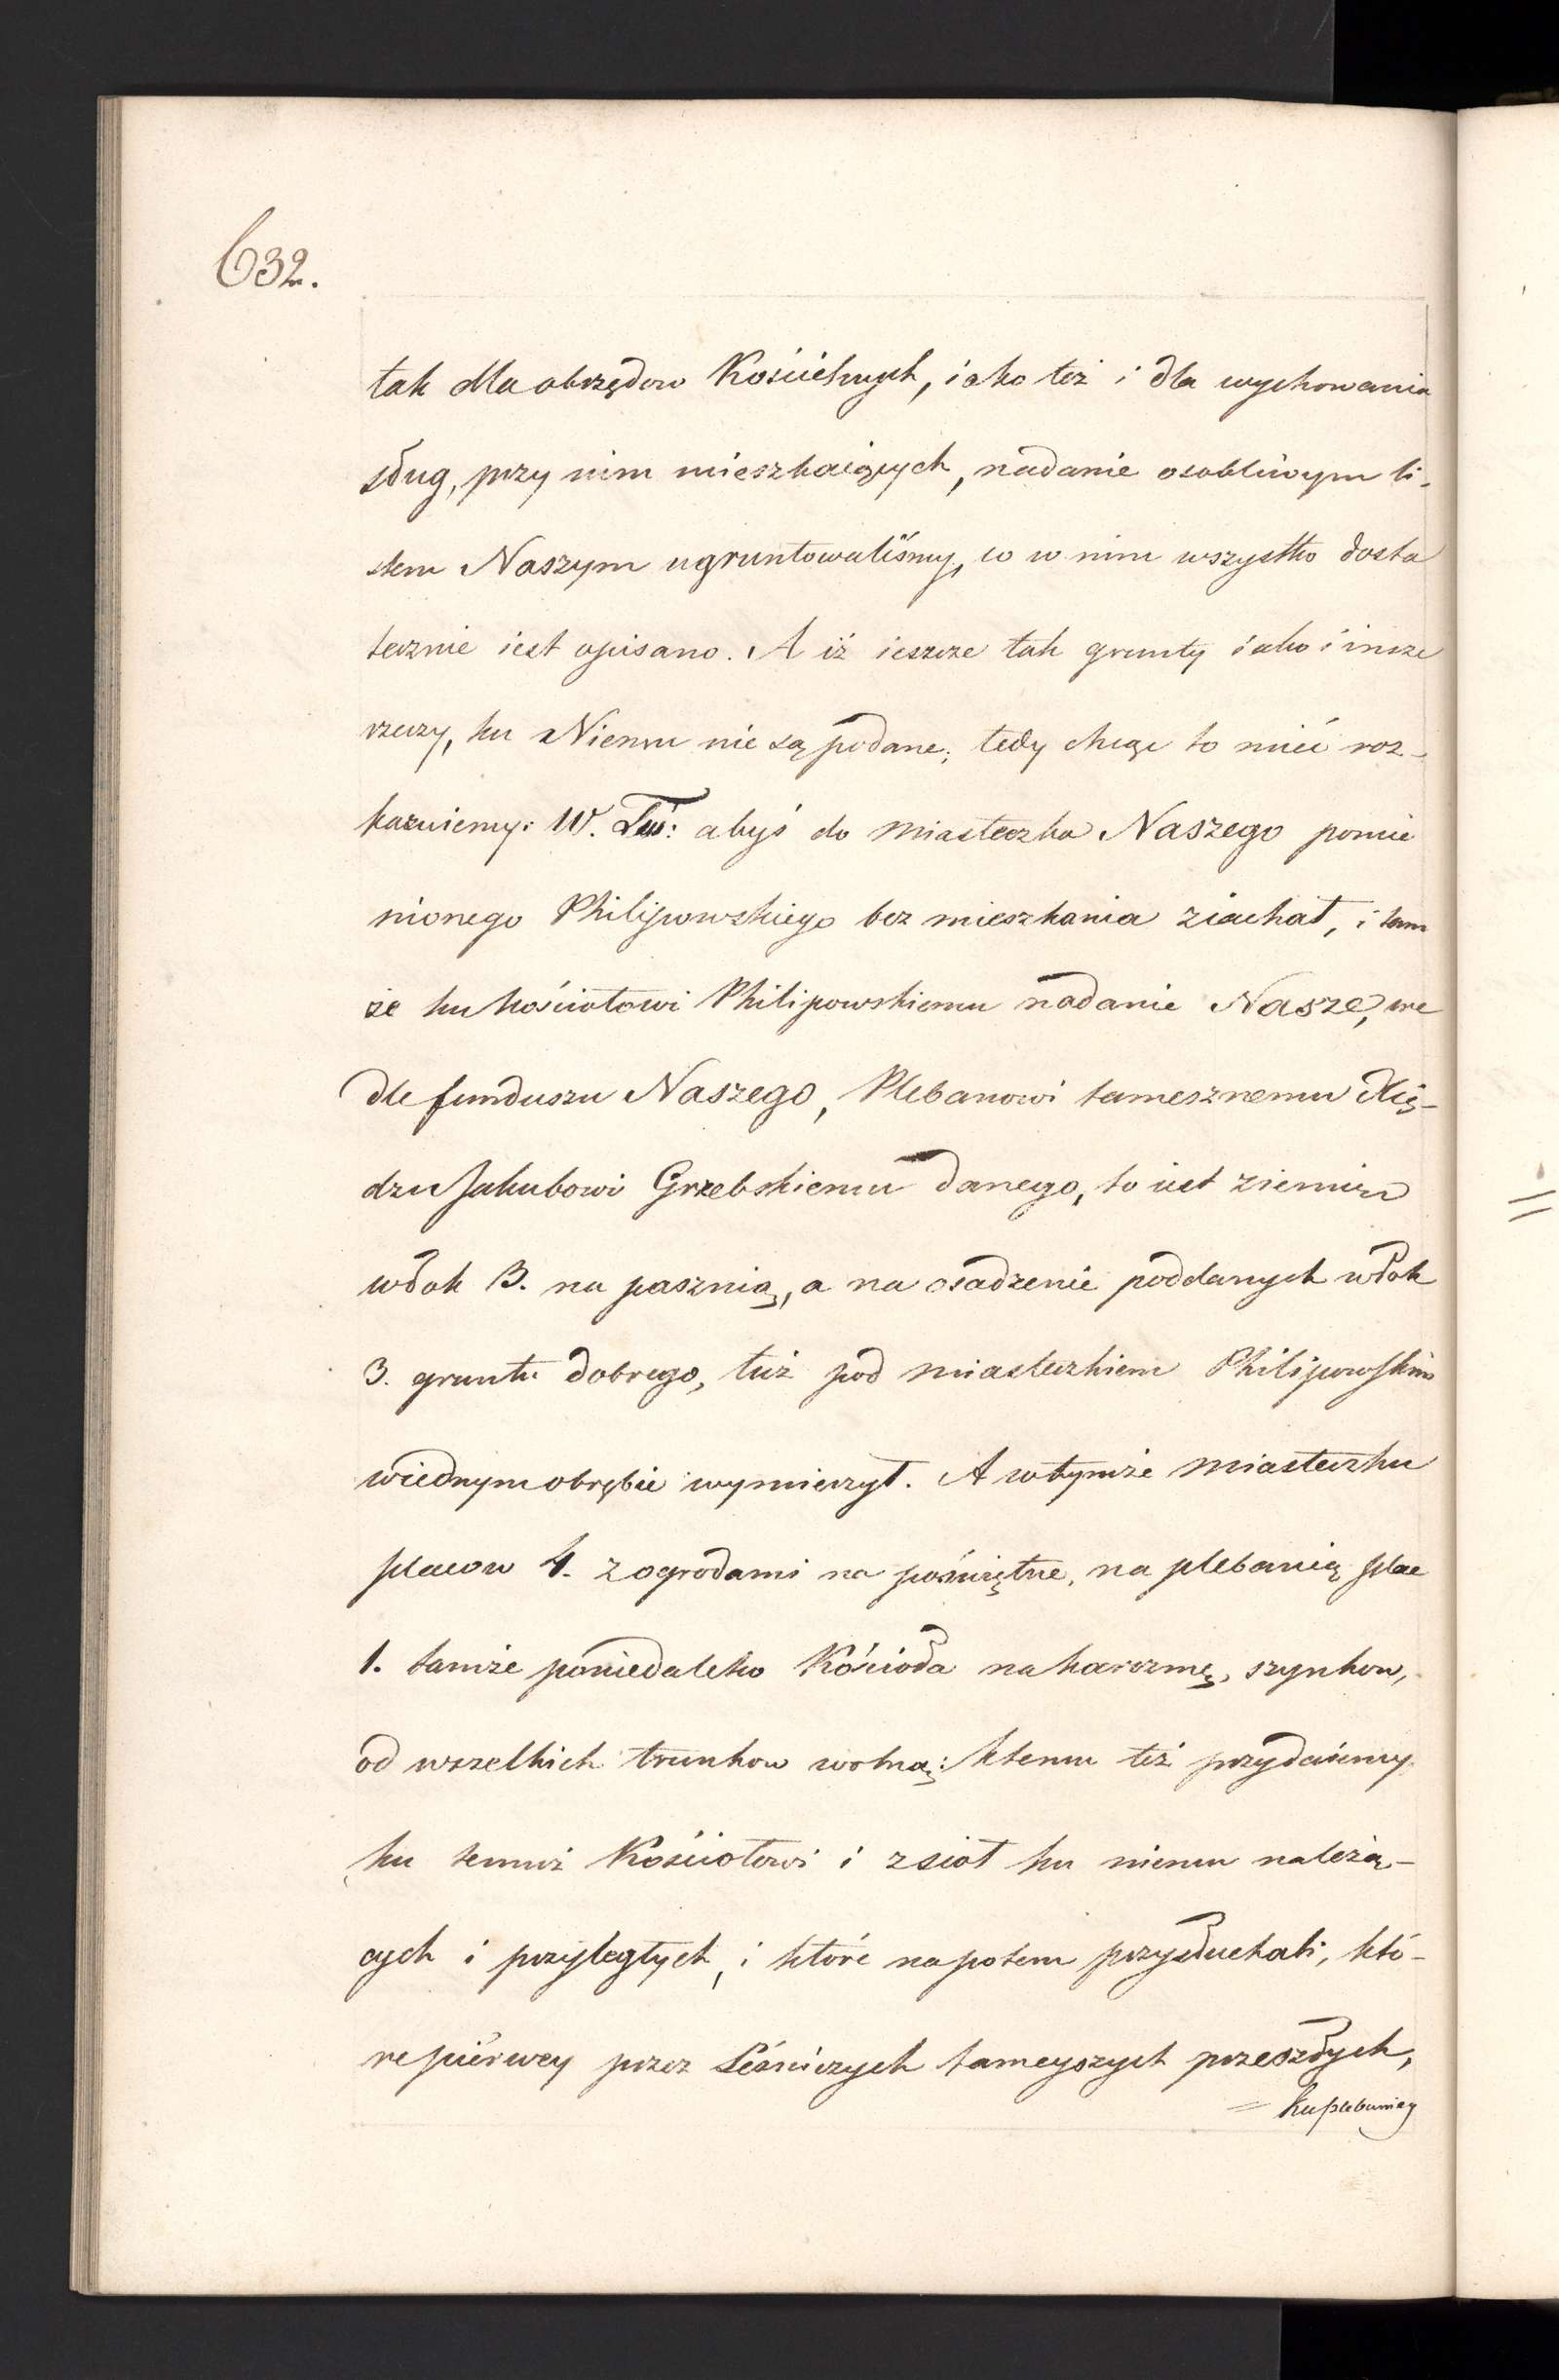 632.
tak dla obrzędow Kościelnych, iako też i dla wychowania
sług, przy nim mieszkaiących, nadanie osobliwym li-
stem Naszym ugruntowaliśmy, co w nim wszystko dosta
tecznie iest opisano. A iż ieszcze tak grunty iako i insze
rzeczy, ku Niemu nie są podane; tedy chcąc to mieć roz-
kazuiemy: W. abyś do miasteczka Naszego pomie
nionego Philipowskiego bez mieszkania ziachał, i tam
że ku kościołowi Philipowskiemu nadanie Nasze, we
dle funduszu Naszego, Plebanowi tamesznemu Xię-
dzu Jakubowi Grzebskiemu danego, to iest ziemie
włok 3. na pasznią, a na osadzenie poddanych włok
3. gruntu dobrego, tuż pod miasteczkiem Philipowskim
wiednym obrębie wymierzył. A wtymże miasteczku
placow 4. zogrodami na poświętne, na plebanią plac
1. tamże poniedaleko Kościoła na karczmę, szynkow,
od wszelkich trunkow wolną: ktemu też przydaiemy
ku temuż Kościołowi i z siół ku niemu należą-
cych i przyległych, i które napotem przysłuchali, któ-
re pierwey przez Leśniczych tameyszych przeszłych,
= ku plebaniey